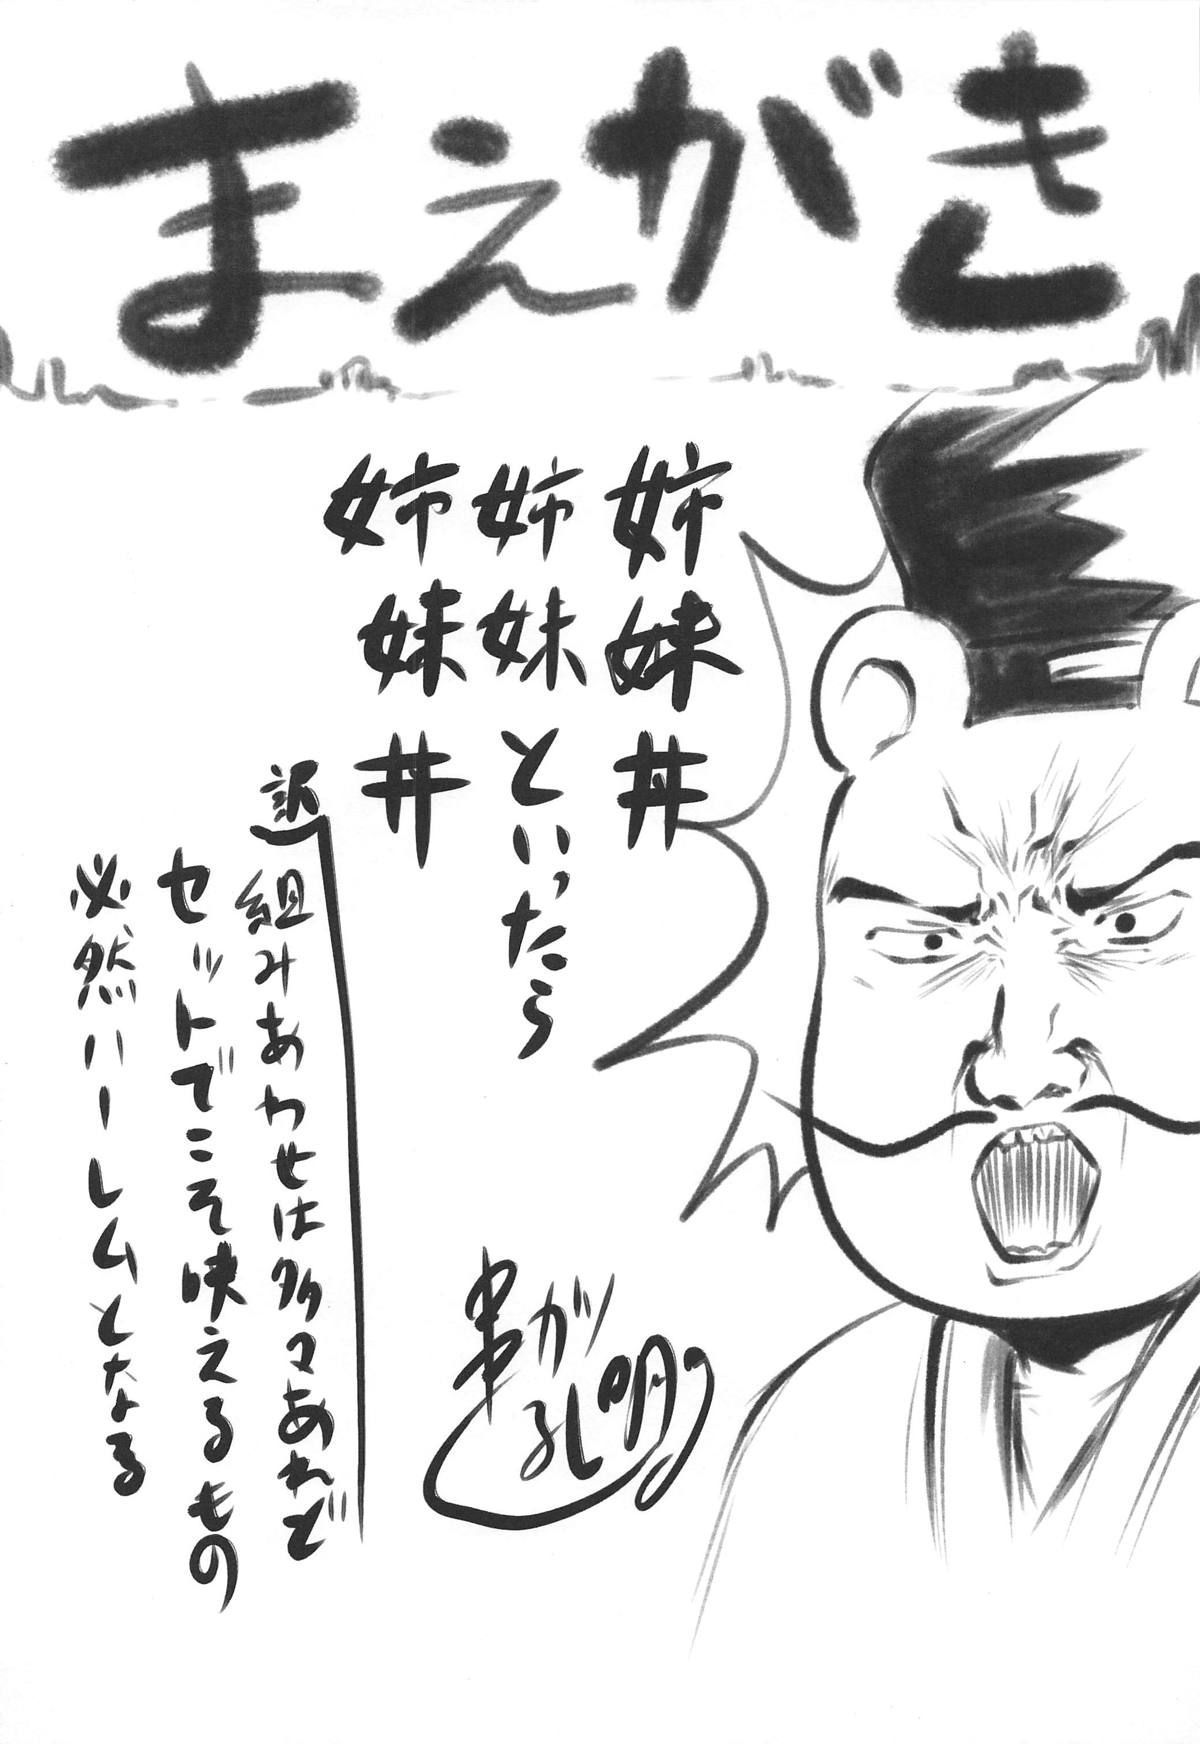 まえがき
姉妹丼
姉妹といったら
姉妹丼
訳
組みあわせは多々あれど
セットでこそ映えるもの
必然ハーレムとなる
串がツ
孔明